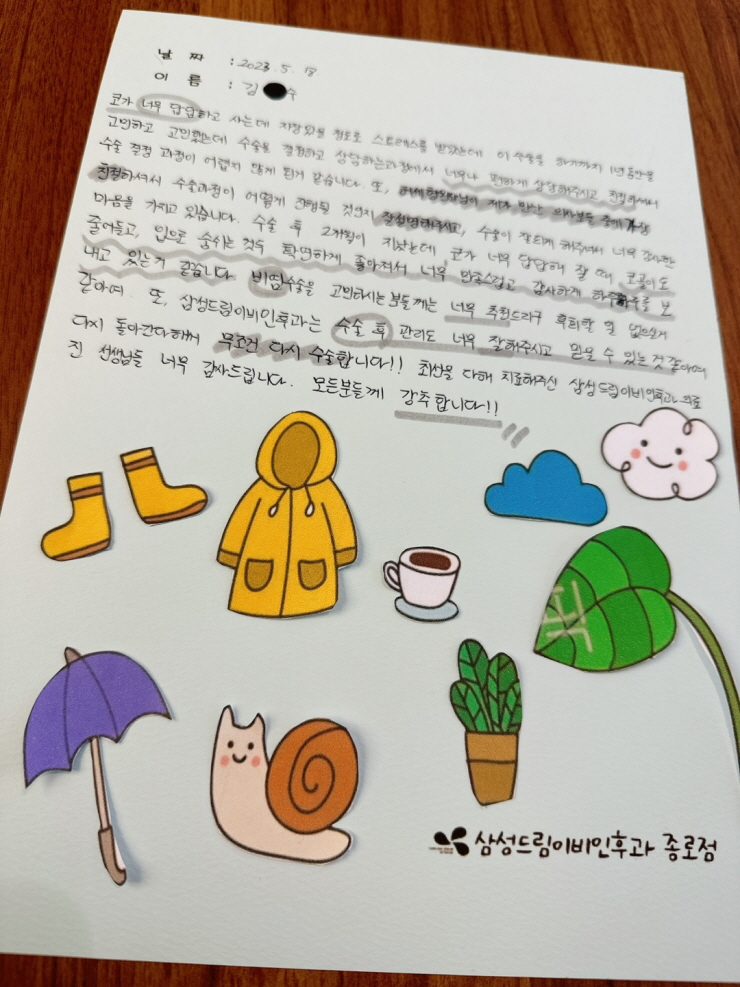 날 짜 : 2023. 5. 18
이 름 : 김 수
코가 너무 답답하고 사는데 지장있을 정도로 스트레스를 받았는데 이 수술을 하기까지 1년동안을
고민하고 고민했는데 수술을 결정하고 상담하는과정에서 너무나 편하게 상담해주시고 친절하셔서
수술 결정 과정이 어렵지 않게 된거 같습니다. 또, 제가 만난 의사분들 중에 가장
친절하셔서 수술과정이 어떻게 진행될 것인지 잘설명해주시고, 수술이 잘되게 해주셔서 너무 감사한
마음을 가지고 있습니다. 수술 후 2개월이 지났는데 코가 너무 답답해 잘 때 코골이도
줄어들고, 입으로 숨쉬는 것도 확연하게 좋아져서 너무 만족스럽고 감사하게 하루하루를 보
내고 있는거 같습니다. 비염수술을 고민하시는분들께는 너무 추천드리구 후회할 일 없으실거
같아여. 또, 삼성드림이비인후과는 수술 후 관리도 너무 잘해주시고 믿을 수 있는 것 같아여
다시 돌아간다해써 무조건 다시 수술합니다!! 최선을 다해 치료해주신 삼성드림이비인후과 의료
진 선생님들 너무 감사드립니다. 모든분들께 강추합니다!!
삼성드림이비인후과 종로점